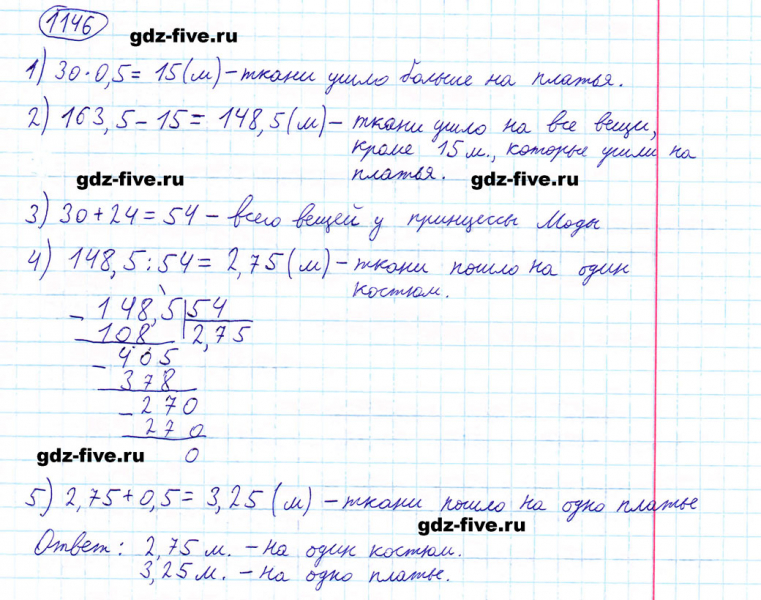 1146
gdz-five.ru
1) 30·0,5 = 15 (м) – ткани ушло больше на платья.
2) 163,5 – 15 = 148,5 (м) – ткани ушло на все вещи,
кроме 15 м., которые ушли на
платья.
gdz-five.ru gdz-five.ru
3) 30 + 24 = 54 – всего вещей у принцессы Моды
4) 148,5 : 54 = 2,75 (м) – ткани пошло на один
костюм.
– 148,5 54
108 2,75
– 405
378
– 270
270
0
gdz-five.ru
5) 2,75 + 0,5 = 3,25 (м) – ткани пошло на одно платье
gdz-five.ru
Ответ: 2,75 м. – на один костюм.
3,25 м. – на одно платье.